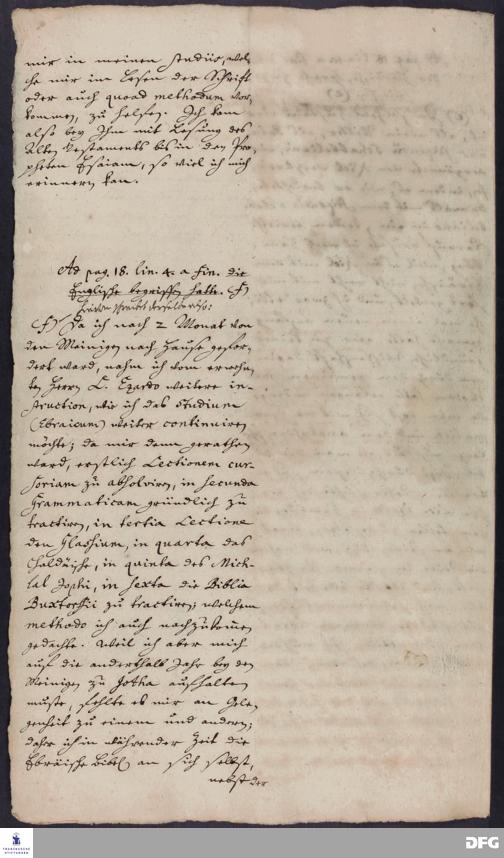 mir in meinen studiis, wel-
che mir im Lesen der Schrifft
oder auch quoad methodum vor-
kommen, zu helfen. Ich kam
also bey Ihm mit Lesung des
Alten Testaments bis in den Pro-
pheten Esaiam, so viel ich mich
erinnern kan.
Ad pag. 18. lin. 4. a fin. die
Englische begriffen hatte. (F)
hievon schreibet derselbe also:
(F) Da ich nach 2 Monat von
den Meinigen nach Hause gefor-
dert ward, nahm ich vom erwehn-
ten Herrn L. Ezardo weitere in-
struction, wie ich das studium
Ebraicum weiter continuiren
möchte; da mir denn gerathen
ward, erstlich Lectionem cur-
soriam zu absolviren, in secunda
Grammaticam gründlich zu
tractiren, in tertia Lectione
den Glassium, in quarta das
Chaldäische, in quinta des Mich-
lal Jophi, in sexta die Biblia
Buxtorfii zu tractiren; welchem
methodo ich auch nachzukommen
gedachte. Weil ich aber mich
auf die anderthalb Jahr bey den
Meinigen zu Gotha aufhalten
muste, fehlte es mir an Gele-
genheit zu einem und andern;
daher ich in währender Zeit die
Ebräische Bibel an sich selbst,
nebst der
FRANCKESCHE STIFTUNGEN
DFG